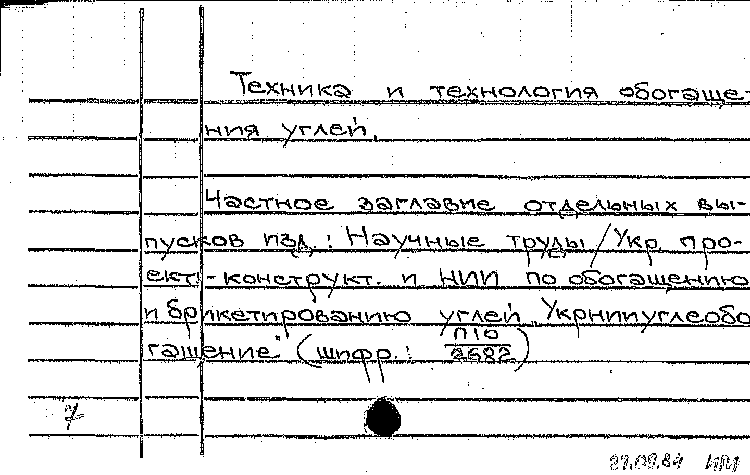 Техника и технология обогаще-
ния углей.
Частное заглавие отдельных вы-
пусков изд.: Научные труды / Укр. про-
ект.-конструкт. и НИИ по обогащению
и брикетированию углей "Укрнииуглеобо
гащение" (шифр.: П10
2682)
7